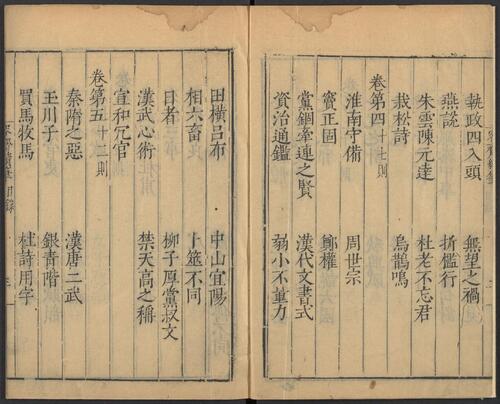 執政四入頭 無望之禍
燕說 折檻行
朱雲陳元達 杜老不忘君
栽松詩 烏鵲鳴
卷第四十七則
淮南守備 周世宗
竇正固 鄭權
黨錮牽連之賢 漢代文書式
資治通鑑 弱小不量力
田橫呂布 中山宜陽
相六畜 卜筮不同
日者 柳子厚黨叔文
漢武心術 禁天高之稱
宣和冗官
卷第五十二則
秦隋之惡 漢唐二武
玉川子 銀青階
買馬牧馬 杜詩用字